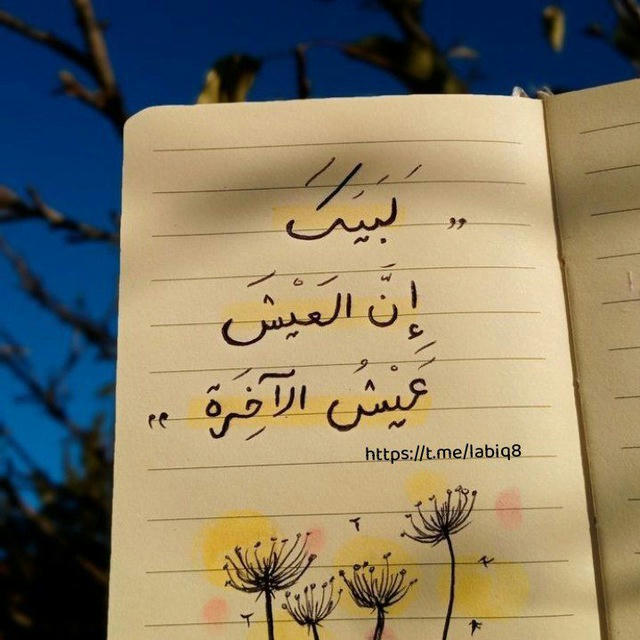 „ لَبَيَكَ
إِنَّ العَيْشَ
عَيْشُ الآخِرَة „
https://t.me/labiq8